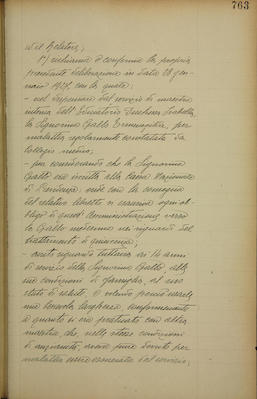 763
ed il Relatore;
1°) richiama e conferma la propria
precedente deliberazione in data 28 gen-
naio 1927, con la quale:
- nel dispensare dal servizio di maestra
interna dell'Educatorio Duchessa Isabella
la Signorina Gallo Ermenegilda, per
malattia regolarmente constatata da
Collegio medico;
- pur considerando che la Signorina
Gallo era iscritta alla Cassa Nazionale
di Previdenza, onde con la consegna
del relativo libretto si esauriva ogni ob-
bligo di quest'Amministrazione verso
la Gallo medesima nei riguardi del
trattamento di quiescenza;
- avuto riguardo tuttavia ai 14 anni
di servizio della Signorina Gallo, alle
sue condizioni di famiglia, al suo
stato di salute, e volendo perciò usarle
una benevola larghezza conformemente
a quanto si era praticato con altra
maestra che, nelle stesse condizioni
di anzianità, aveva pure dovuto per
malattia essere esonerata dal servizio,